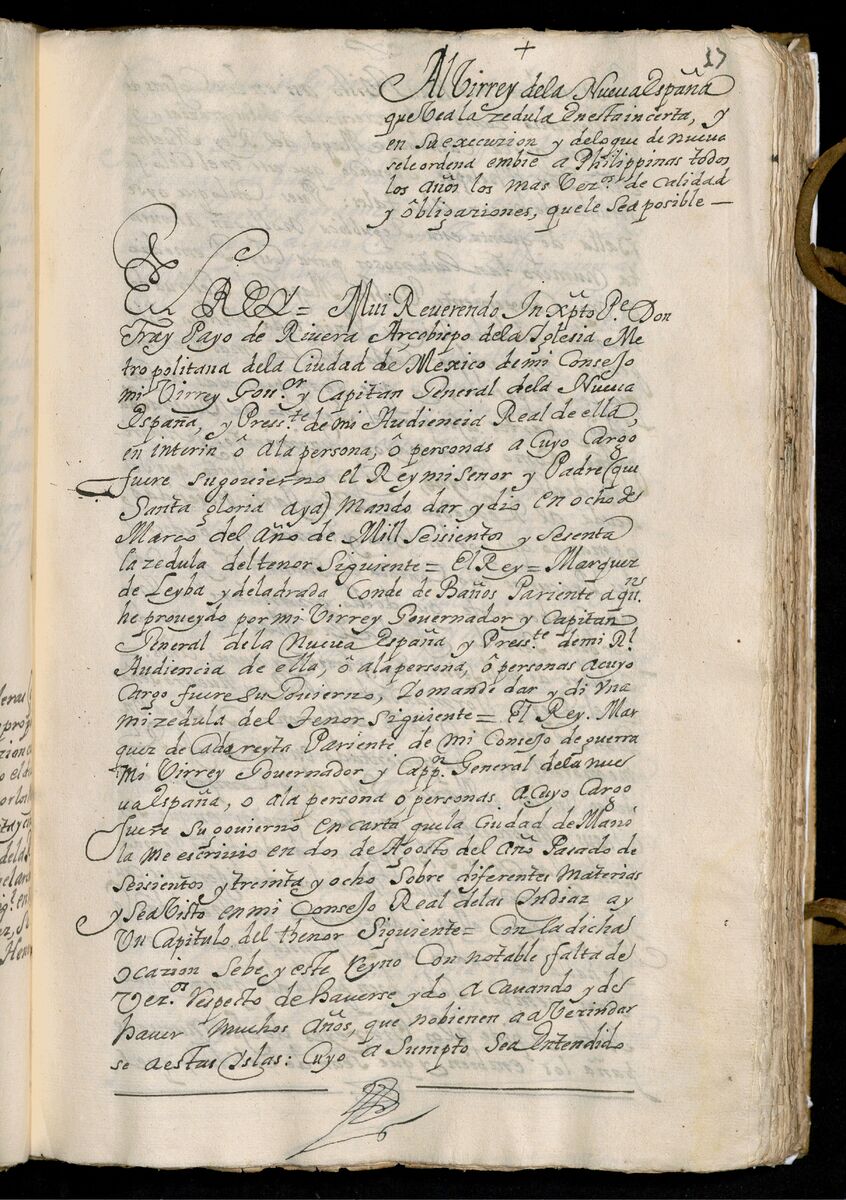 +
17
Al Virrey dela Nueva españa
que Vea la zedula en esta incerta, y
en su execuzion y delo que de nuevo
sele ordena embie a Philippinas todos
los años los mas Vez.os de calidad
y ôbligaziones, quele sea posible —
El REY = Mui Reverendo In Xpto Pe Don
Fray Payo de Rivera Arcobispo dela Iglesia Me
tropolitana dela Ciudad de Mexico de mi Consejo
mi Virrey Gov.or y Capitan General dela Nueva
España, y Press.te de mi Audiencia Real de ella,
en interin ô ala persona, ô personas a Cuyo Cargo
fuere su govierno el Rey mi Senor y Padre (que
Santa gloria aya) Mando dar y dio en ocho de
Marco del Año de Mill Seisientos y Sesenta
la zedula del tenor Siguiente = El Rey = Marquez
de Leyba y deladrada Conde de Baños Pariente a qn.
he proveydo por mi Virrey Governador y Capitan
General dela Nueva España y Press.te demi Rl.
Audiencia de ella, ô ala persona, ô personas acuyo
Cargo fuere su Govierno, Yo mande dar y di Vna
mi zedula del Tenor Siguiente = El Rey. Mar
quez de Cadareyta Pariente de mi Consejo de guerra
Mi Virrey Governador y Capp.n General dela nue
va España, o ala persona o personas a Cuyo Cargo
fuere su govierno en carta que la Ciudad de Mani
la Me escrivio en dos de Agosto del Año Pasado de
Seisientos y treinta y ocho Sobre diferentes Materias
y Sea Visto en mi Consejo Real delas Indiaz ay
Vn Capitulo del thenor Siguiente = Con la dicha
ocazion Sebe, y este reyno Con notable falta de
Vez.os respecto de haverse ydo a Cavando y de
haver Muchos Años, que nobienen a aVezindar
se aestas Yslas: Cuyo a Sumpto Sea Entendido